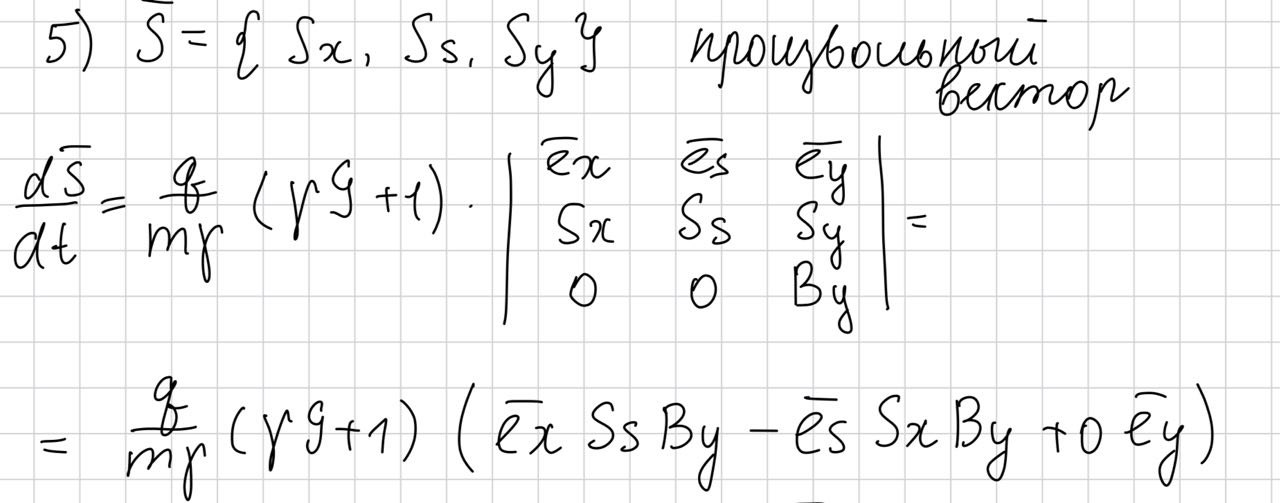 5) S̄ = { Sx, Ss, Sy } произвольный
вектор
dS̄/dt = q/mγ (γG+1) · | ēx ēs ēy |
| Sx Ss Sy | =
| 0 0 By |
= q/mγ (γG+1) (ēx Ss By − ēs Sx By + 0 ēy)